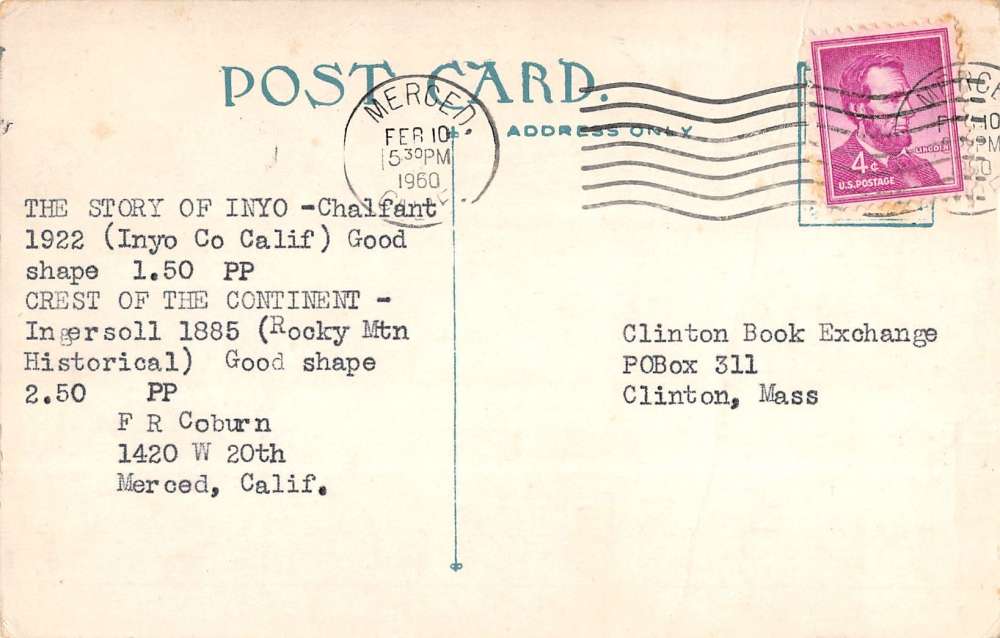 POST CARD.
ADDRESS ONLY
MERCED
FEB 10
5 30 PM
1960
CALIF.
LINCOLN
4¢
U.S. POSTAGE
MERCED
10
PM
60
THE STORY OF INYO -Chalfant
1922 (Inyo Co Calif) Good
shape 1.50 PP
CREST OF THE CONTINENT -
Ingersoll 1885 (Rocky Mtn
Historical) Good shape
2.50 PP
F R Coburn
1420 W 20th
Merced, Calif.
Clinton Book Exchange
POBox 311
Clinton, Mass